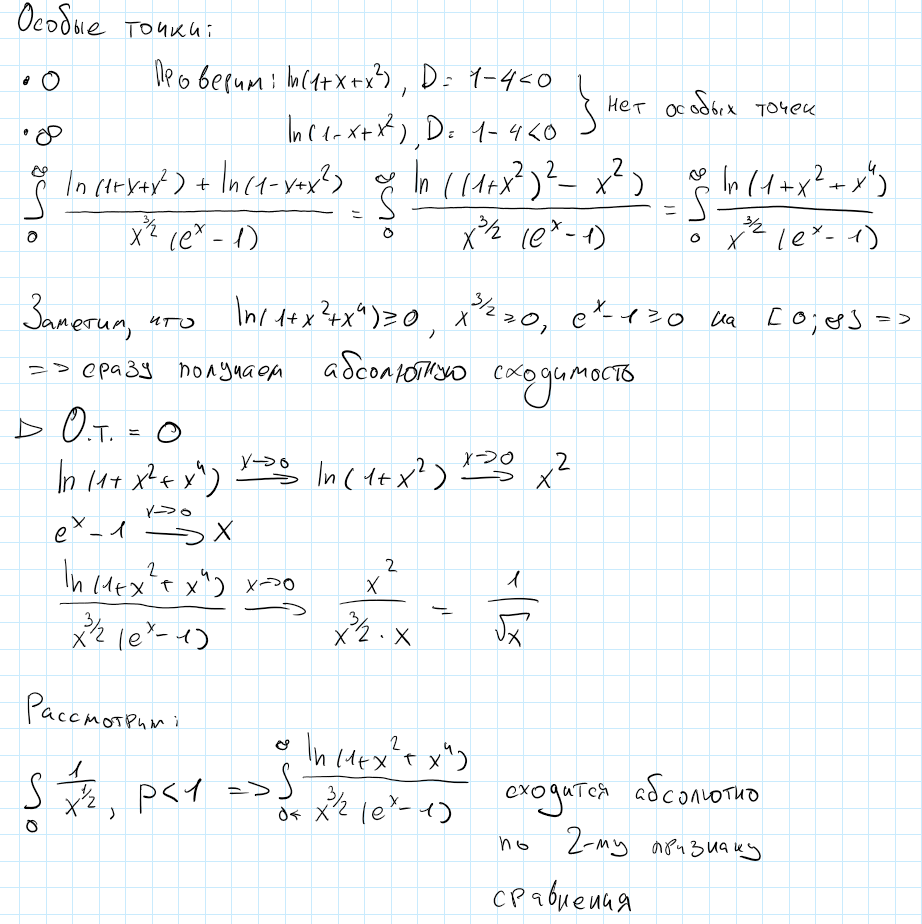 Особые точки:
• 0 Проверим: ln(1+x+x²), D = 1-4<0 } нет особых точек
• ∞ ln(1-x+x²), D = 1-4<0
∫₀^∞ (ln(1+x+x²) + ln(1-x+x²)) / (x^{3/2} (e^x - 1)) = ∫₀^∞ ln((1+x²)² - x²) / (x^{3/2} (e^x - 1)) = ∫₀^∞ ln(1+x²+x⁴) / (x^{3/2} (e^x - 1))
Заметим, что ln(1+x²+x⁴) ≥ 0, x^{3/2} ≥ 0, e^x - 1 ≥ 0 на [0; ∞] =>
=> сразу получаем абсолютную сходимость
▷ О.т. = 0
ln(1+x²+x⁴) →(x→0) ln(1+x²) →(x→0) x²
e^x - 1 →(x→0) x
ln(1+x²+x⁴) / (x^{3/2} (e^x - 1)) →(x→0) x² / (x^{3/2} · x) = 1/√x
Рассмотрим:
∫₀ 1/x^{1/2}, p<1 => ∫_{0←}^∞ ln(1+x²+x⁴) / (x^{3/2} (e^x - 1)) сходится абсолютно
по 2-му признаку
сравнения